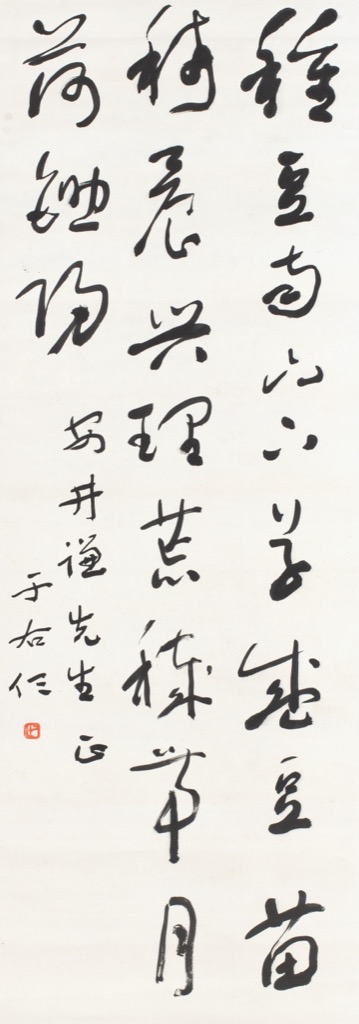 種豆南山下草盛豆苗
稀晨興理荒穢帶月
荷鋤歸
安井謙先生正
于右任